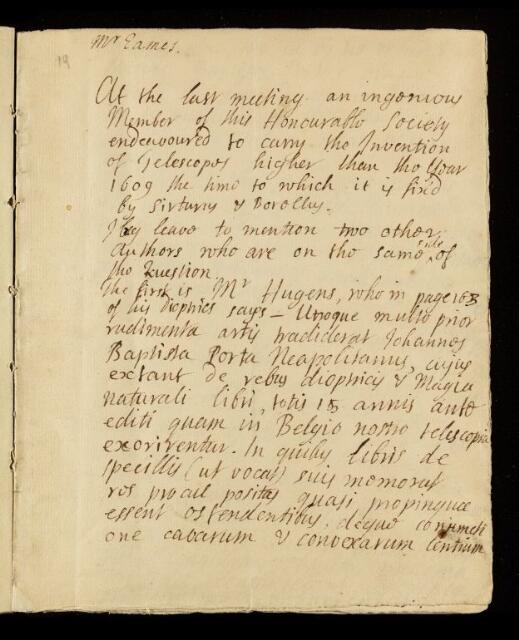 Mr Eames.
19
At the last meeting an ingenious
Member of this Honourable Society
endeavoured to carry the Invention
of Telescopes higher than the Year
1609 the time to which it is fix'd
by Sirturus & Borellus.
I beg leave to mention two other
Authors who are on the same side of
the Question.
The first is Mr Hugens, who in page 163
of his dioptrics says – Utroque multo prior
rudimenta artis tradiderat Johannes
Baptista Porta Neapolitanus, cujus
extant de rebus dioptricis & Magia
naturali libri, totis 15 annis ante
editi quam in Belgio nostro telescopia
exorirentur. In quibus libris de
specillis (ut vocat) suis memorat
res procul positas quasi propinquae
essent ostendentibus, deque conjuncti
one cavarum & convexarum lentium